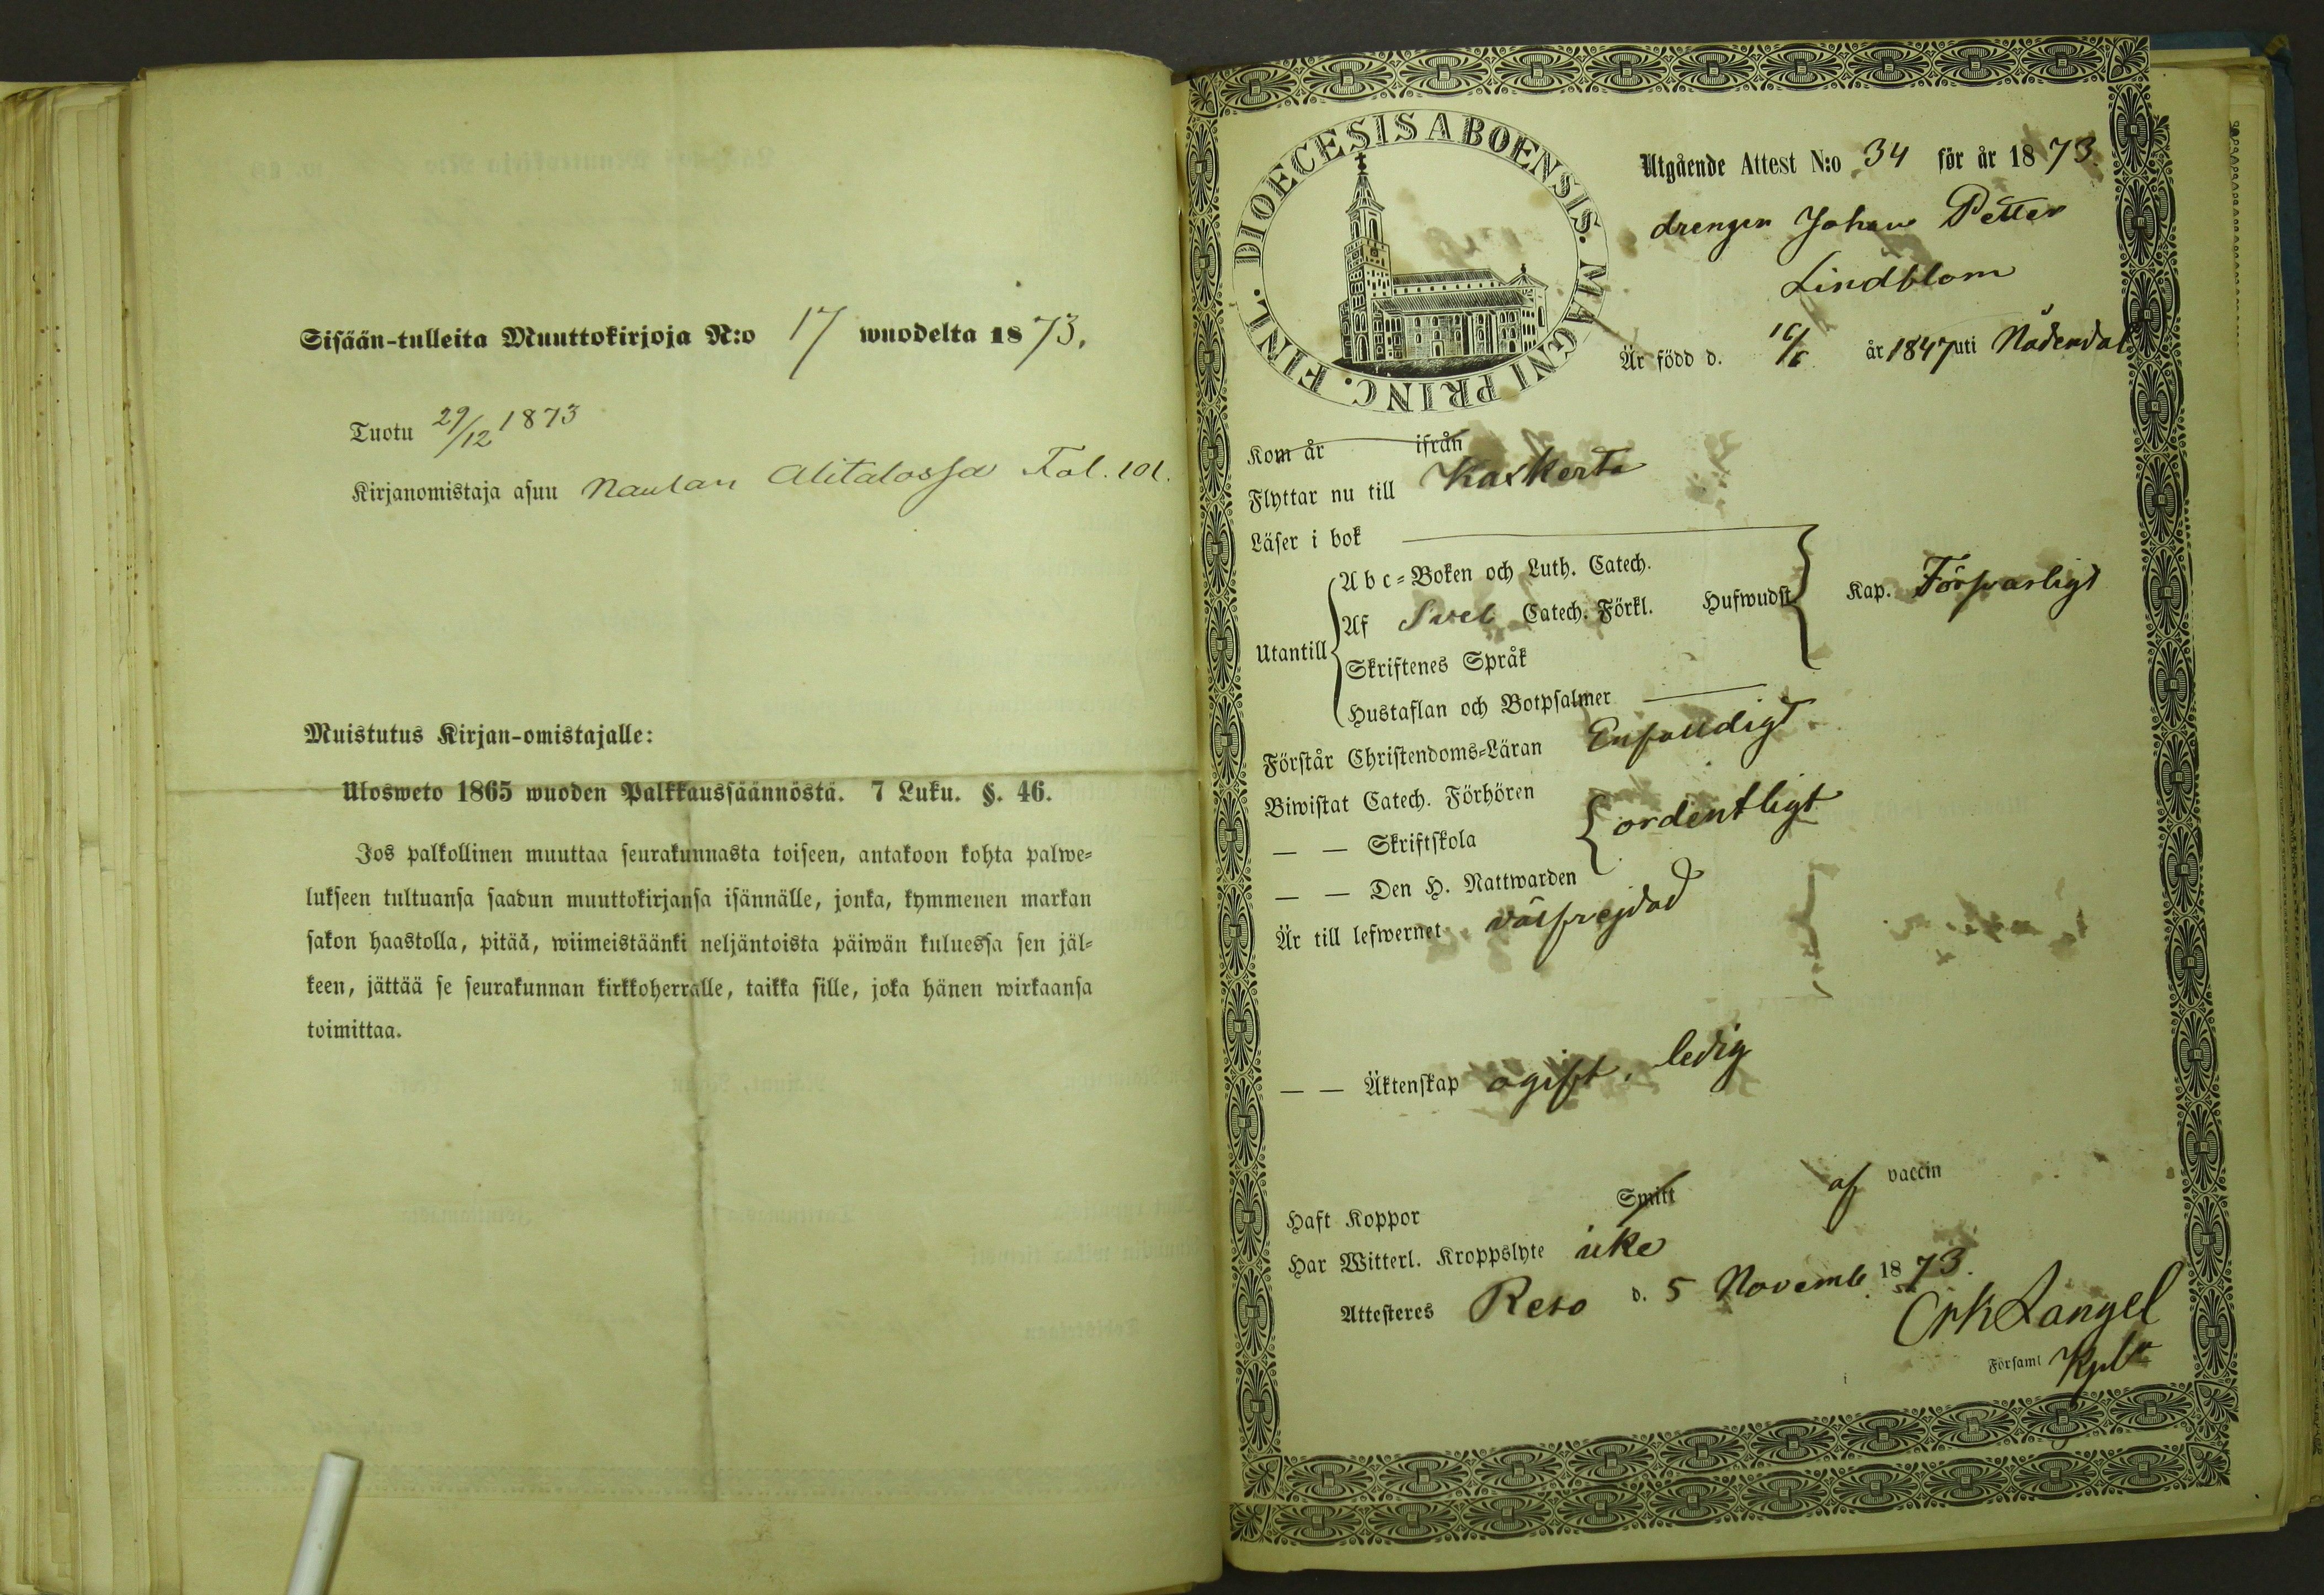 Sisään-tulleita Muuttokirjoja N:o 17 wuodelta 1873.
Tuotu 29/12 1873
Kirjanomistaja asuu Naulan Alitalossa Fol. 101.
Muistutus Kirjan-omistajalle:
Ulosweto 1865 wuoden Palkkaussäännöstä. 7 Luku. §. 46.
Jos palkollinen muuttaa seurakunnasta toiseen, antakoon kohta palwe=
lukseen tultuansa saadun muuttokirjansa isännälle, jonka, kymmenen markan
sakon haastolla, pitää, wiimeistäänki neljäntoista päiwän kuluessa sen jäl=
keen, jättää se seurakunnan kirkkoherralle, taikka sille, joka hänen wirkaansa
toimittaa.
DIOECESIS ABOENSIS. MAGNI PRINC. FINL.
Utgående Attest N:o 34 för år 1873.
drengen Johan Petter
Lindblom
Är född d. 16/6 år 1847 uti Nådendal
Kom år ifrån
Flyttar nu till Kaxkerta
Läser i bok
Utantill
Abc=Boken och Luth. Catech.
Af Svel Catech. Förkl. Hufwudst. Kap. Försvarligt
Skriftenes Språk
Hustaflan och Botpsalmer
Förstår Christendoms=Läran Enfaldigt
Biwistat Catech. Förhören
— — Skriftskola ordentligt
— — Den H. Nattwarden
Är till lefwernet välfrejdad
— — Äktenskap ogift, ledig
Haft Koppor Smitt af vaccin
Har Witterl. Kroppslyte icke
Attesteres Reso d. 5 Novemb. 1873.
Langel
Församl Kpl